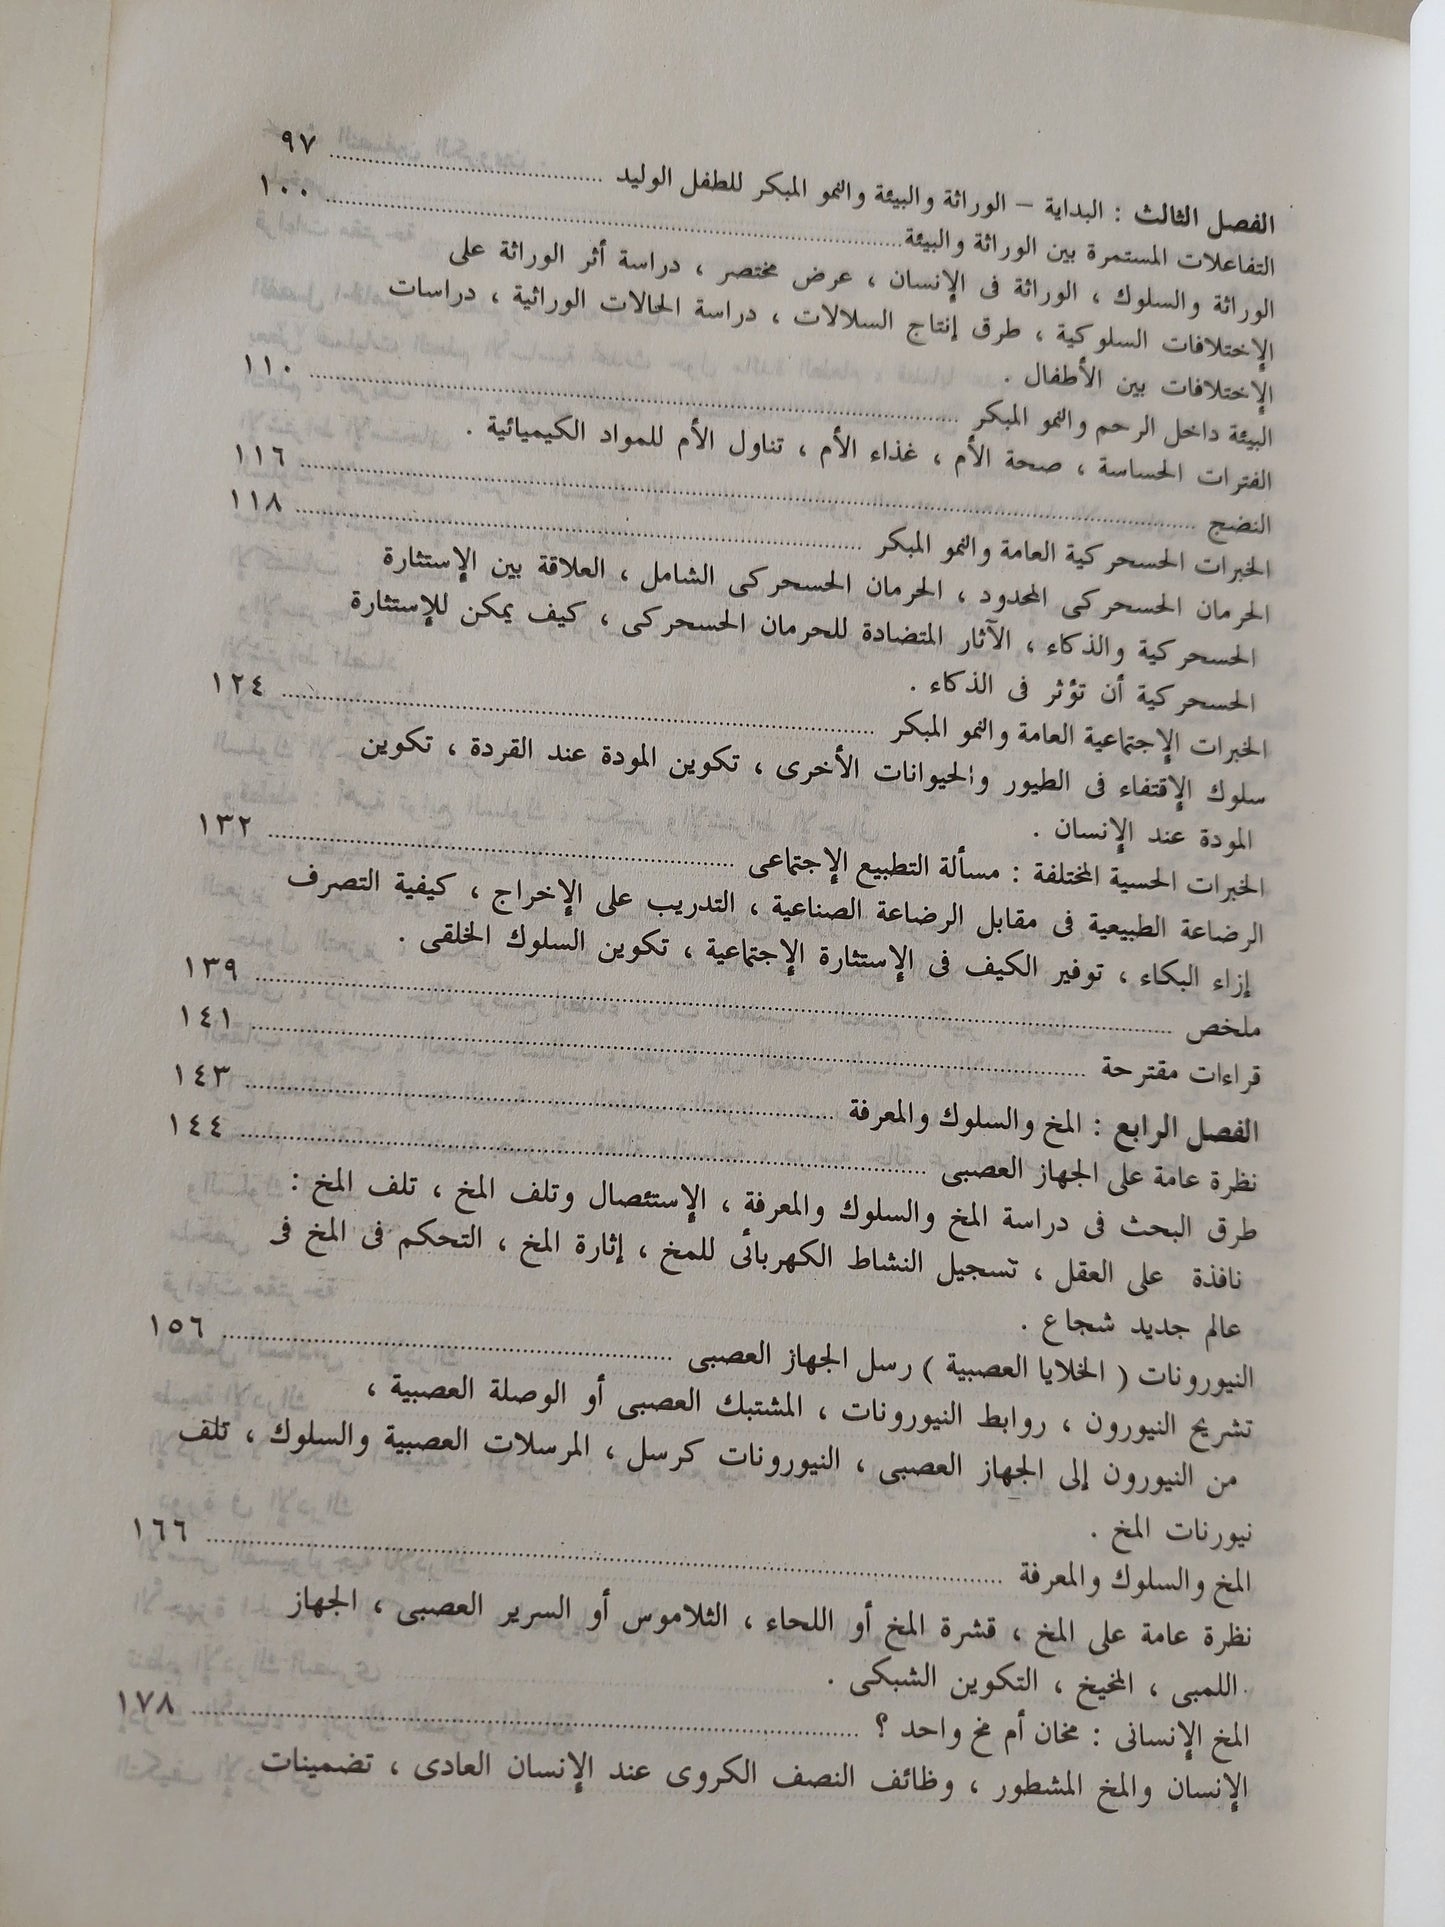 الفصل الثالث : البداية – الوراثة والبيئة والنمو المبكر للطفل الوليد ........ ٩٧
التفاعلات المستمرة بين الوراثة والبيئة ........ ١٠٠
الوراثة والسلوك ، الوراثة فى الإنسان ، عرض مختصر ، دراسة أثر الوراثة على
الإختلافات السلوكية ، طرق إنتاج السلالات ، دراسة الحالات الوراثية ، دراسات
الإختلافات بين الأطفال .
البيئة داخل الرحم والنمو المبكر ........ ١١٠
الفترات الحساسة ، صحة الأم ، غذاء الأم ، تناول الأم للمواد الكيميائية .
النضج ........ ١١٦
الخبرات الحسحركية العامة والنمو المبكر ........ ١١٨
الحرمان الحسحركى المحدود ، الحرمان الحسحركى الشامل ، العلاقة بين الإستثارة
الحسحركية والذكاء ، الآثار المتضادة للحرمان الحسحركى ، كيف يمكن للإستثارة
الحسحركية أن تؤثر فى الذكاء .
الخبرات الإجتماعية العامة والنمو المبكر ........ ١٢٤
سلوك الإقتفاء فى الطيور والحيوانات الأخرى ، تكوين المودة عند القردة ، تكوين
المودة عند الإنسان .
الخبرات الحسية المختلفة : مسألة التطبيع الإجتماعى ........ ١٣٢
الرضاعة الطبيعية فى مقابل الرضاعة الصناعية ، التدريب على الإخراج ، كيفية التصرف
إزاء البكاء ، توفير الكيف فى الإستثارة الإجتماعية ، تكوين السلوك الخلقى .
ملخص ........ ١٣٩
قراءات مقترحة ........ ١٤١
الفصل الرابع : المخ والسلوك والمعرفة ........ ١٤٣
نظرة عامة على الجهاز العصبى ........ ١٤٤
طرق البحث فى دراسة المخ والسلوك والمعرفة ، الإستئصال وتلف المخ ، تلف المخ :
نافذة على العقل ، تسجيل النشاط الكهربائى للمخ ، إثارة المخ ، التحكم فى المخ فى
عالم جديد شجاع .
النيورونات ( الخلايا العصبية ) رسل الجهاز العصبى ........ ١٥٦
تشريح النيورون ، روابط النيورونات ، المشتبك العصبى أو الوصلة العصبية ،
من النيورون إلى الجهاز العصبى ، النيورونات كرسل ، المرسلات العصبية والسلوك ، تلف
نيورنات المخ .
المخ والسلوك والمعرفة ........ ١٦٦
نظرة عامة على المخ ، قشرة المخ أو اللحاء ، الثلاموس أو السرير العصبى ، الجهاز
اللمبى ، المخيخ ، التكوين الشبكى .
المخ الإنسانى : مخان أم مخ واحد ؟ ........ ١٧٨
الإنسان والمخ المشطور ، وظائف النصف الكروى عند الإنسان العادى ، تضمينات